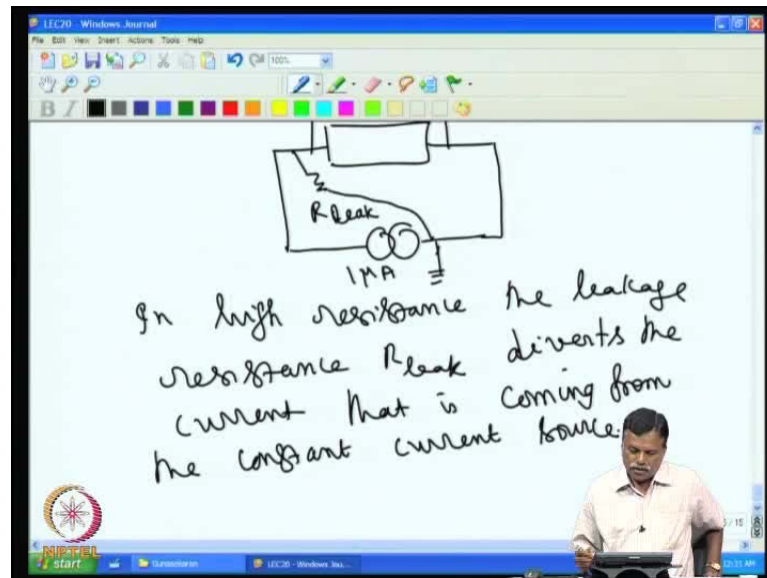 LEC20 - Windows Journal
File Edit View Insert Actions Tools Help
100%
B I
R leak
1 μA
In high resistance the leakage
resistance R leak diverts the
current that is coming from
the constant current source.
NPTEL
/ 15
start
Gunasekaran
LEC20 - Windows Jou...
12:31 AM